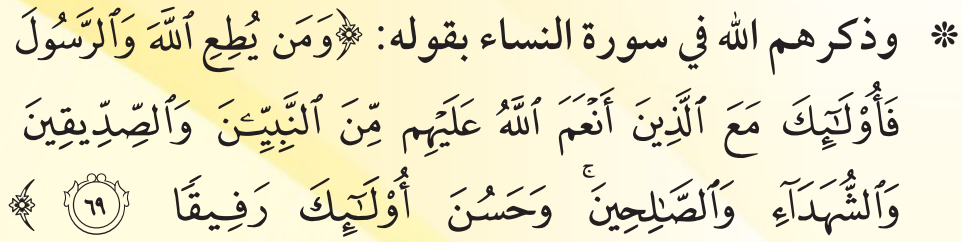 ❊ وذكرهم الله في سورة النساء بقوله: ﴿وَمَن يُطِعِ ٱللَّهَ وَٱلرَّسُولَ
فَأُوْلَـٰٓئِكَ مَعَ ٱلَّذِينَ أَنۡعَمَ ٱللَّهُ عَلَيۡهِم مِّنَ ٱلنَّبِيِّـۧنَ وَٱلصِّدِّيقِينَ
وَٱلشُّهَدَآءِ وَٱلصَّـٰلِحِينَۚ وَحَسُنَ أُوْلَـٰٓئِكَ رَفِيقٗا ٦٩ ﴾